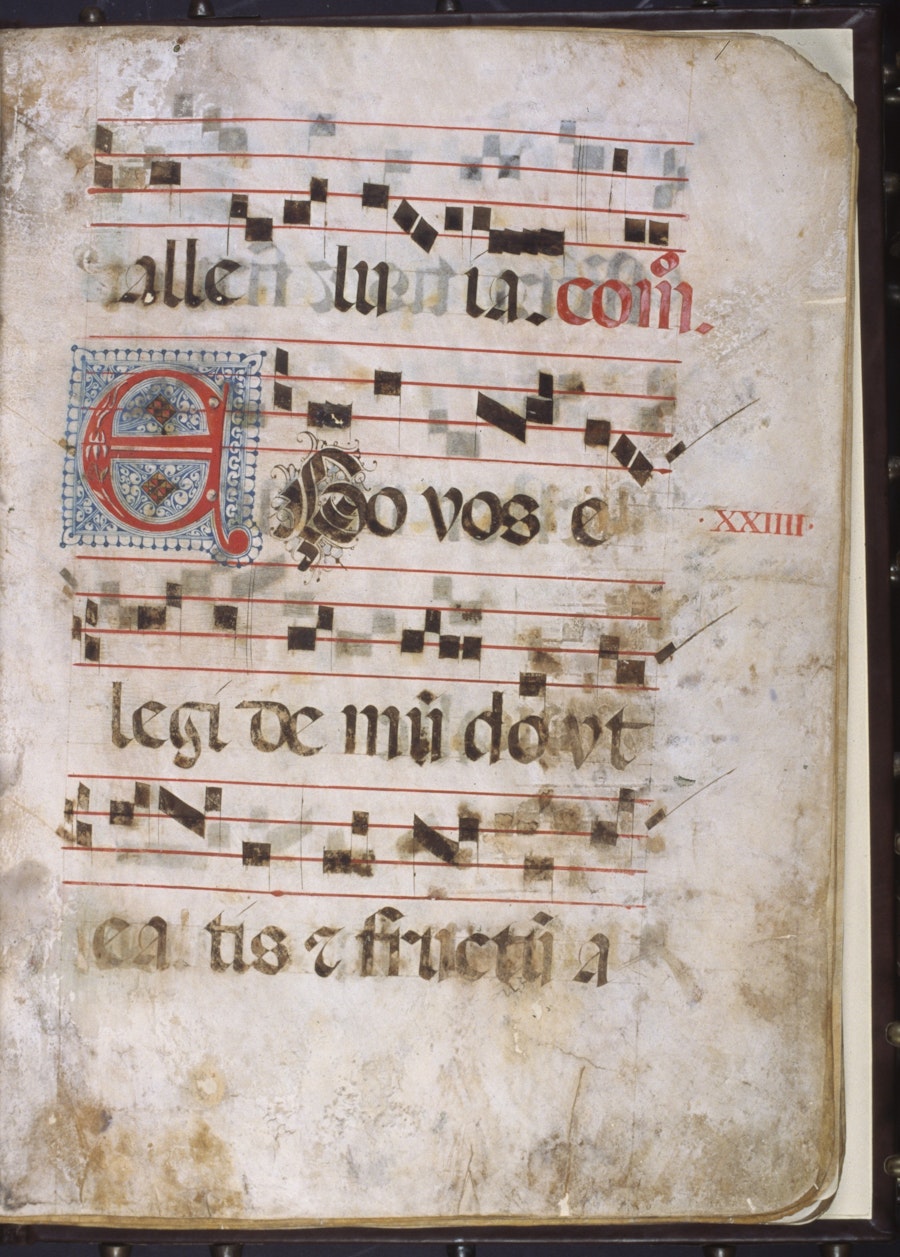 alle lu ia. com̄.
Ego vos e
XXIIII
legi de mūdo vt
ea tis ⁊ fructū a